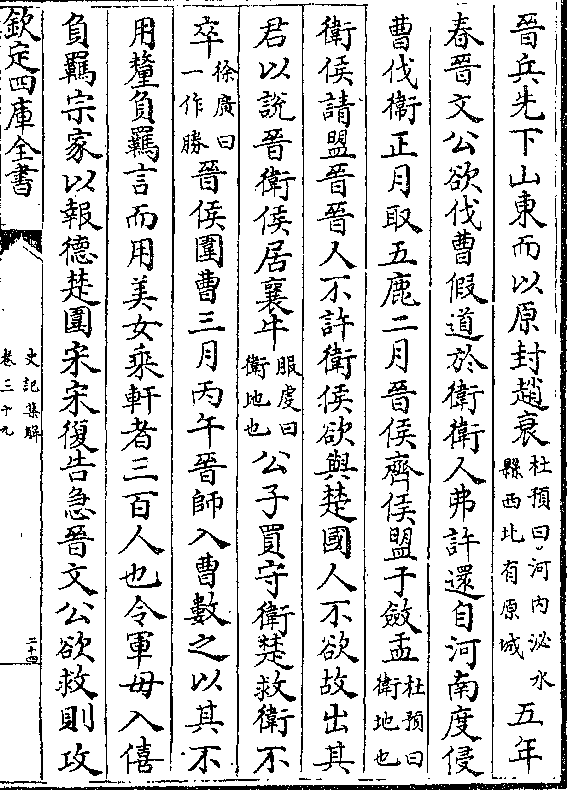 晉兵先下山東而以原封趙衰杜預曰河內沁水縣西北有原城五年
春晉文公欲伐曹假道於衛衛人弗許還自河南度侵
曹伐衛正月取五鹿二月晉侯齊侯盟于斂盂杜預曰衛地也
衛侯請盟晉晉人不許衛侯欲與楚國人不欲故出其
君以說晉衛侯居襄牛服虔曰衛地也公子買守衛楚救衛不
卒徐廣曰一作勝晉侯圍曹三月丙午晉師入曹數之以其不
用釐負羈言而用美女乘軒者三百人也令軍毋入僖
負羈宗家以報德楚圍宋宋復告急晉文公欲救則攻
欽定四庫全書
史記集解
卷三十九
二十四